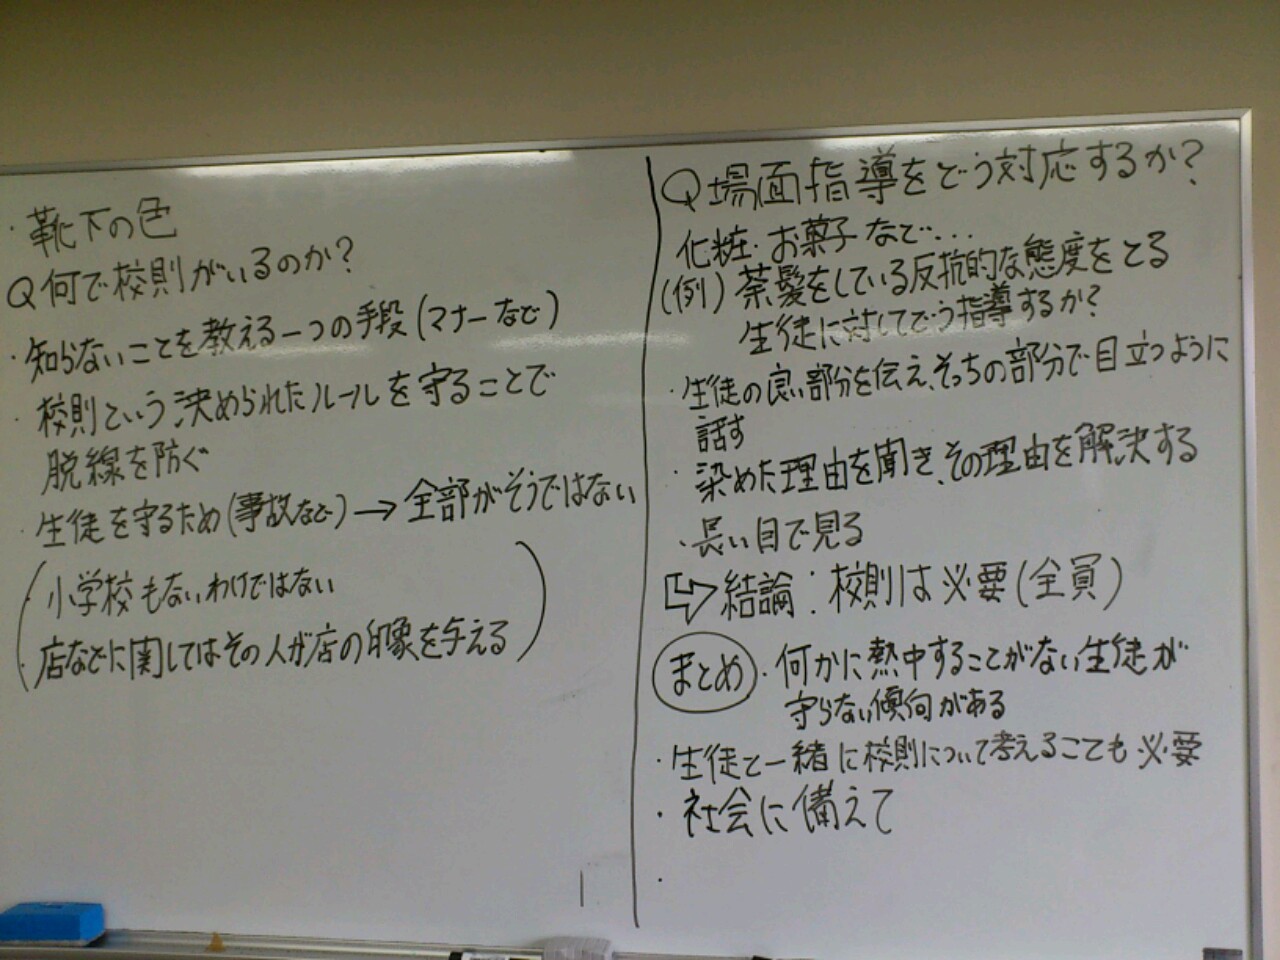 ・靴下の色
Q何で校則がいるのか?
・知らないことを教える一つの手段(マナーなど)
・校則という決められたルールを守ることで
脱線を防ぐ
・生徒を守るため(事故など)→全部がそうではない
(小学校もないわけではない
・店などに関してはその人が店の印象を与える)
Q場面指導をどう対応するか?
化粧・お菓子など...
(例)茶髪をしている反抗的な態度をとる
生徒に対してどう指導するか?
・生徒の良い部分を伝え、そっちの部分で目立つように
話す
・染めた理由を聞き、その理由を解決する
・長い目で見る
⇨結論:校則は必要(全員)
まとめ・何かに熱中することがない生徒が
守らない傾向がある
・生徒と一緒に校則について考えることも必要
・社会に備えて
・